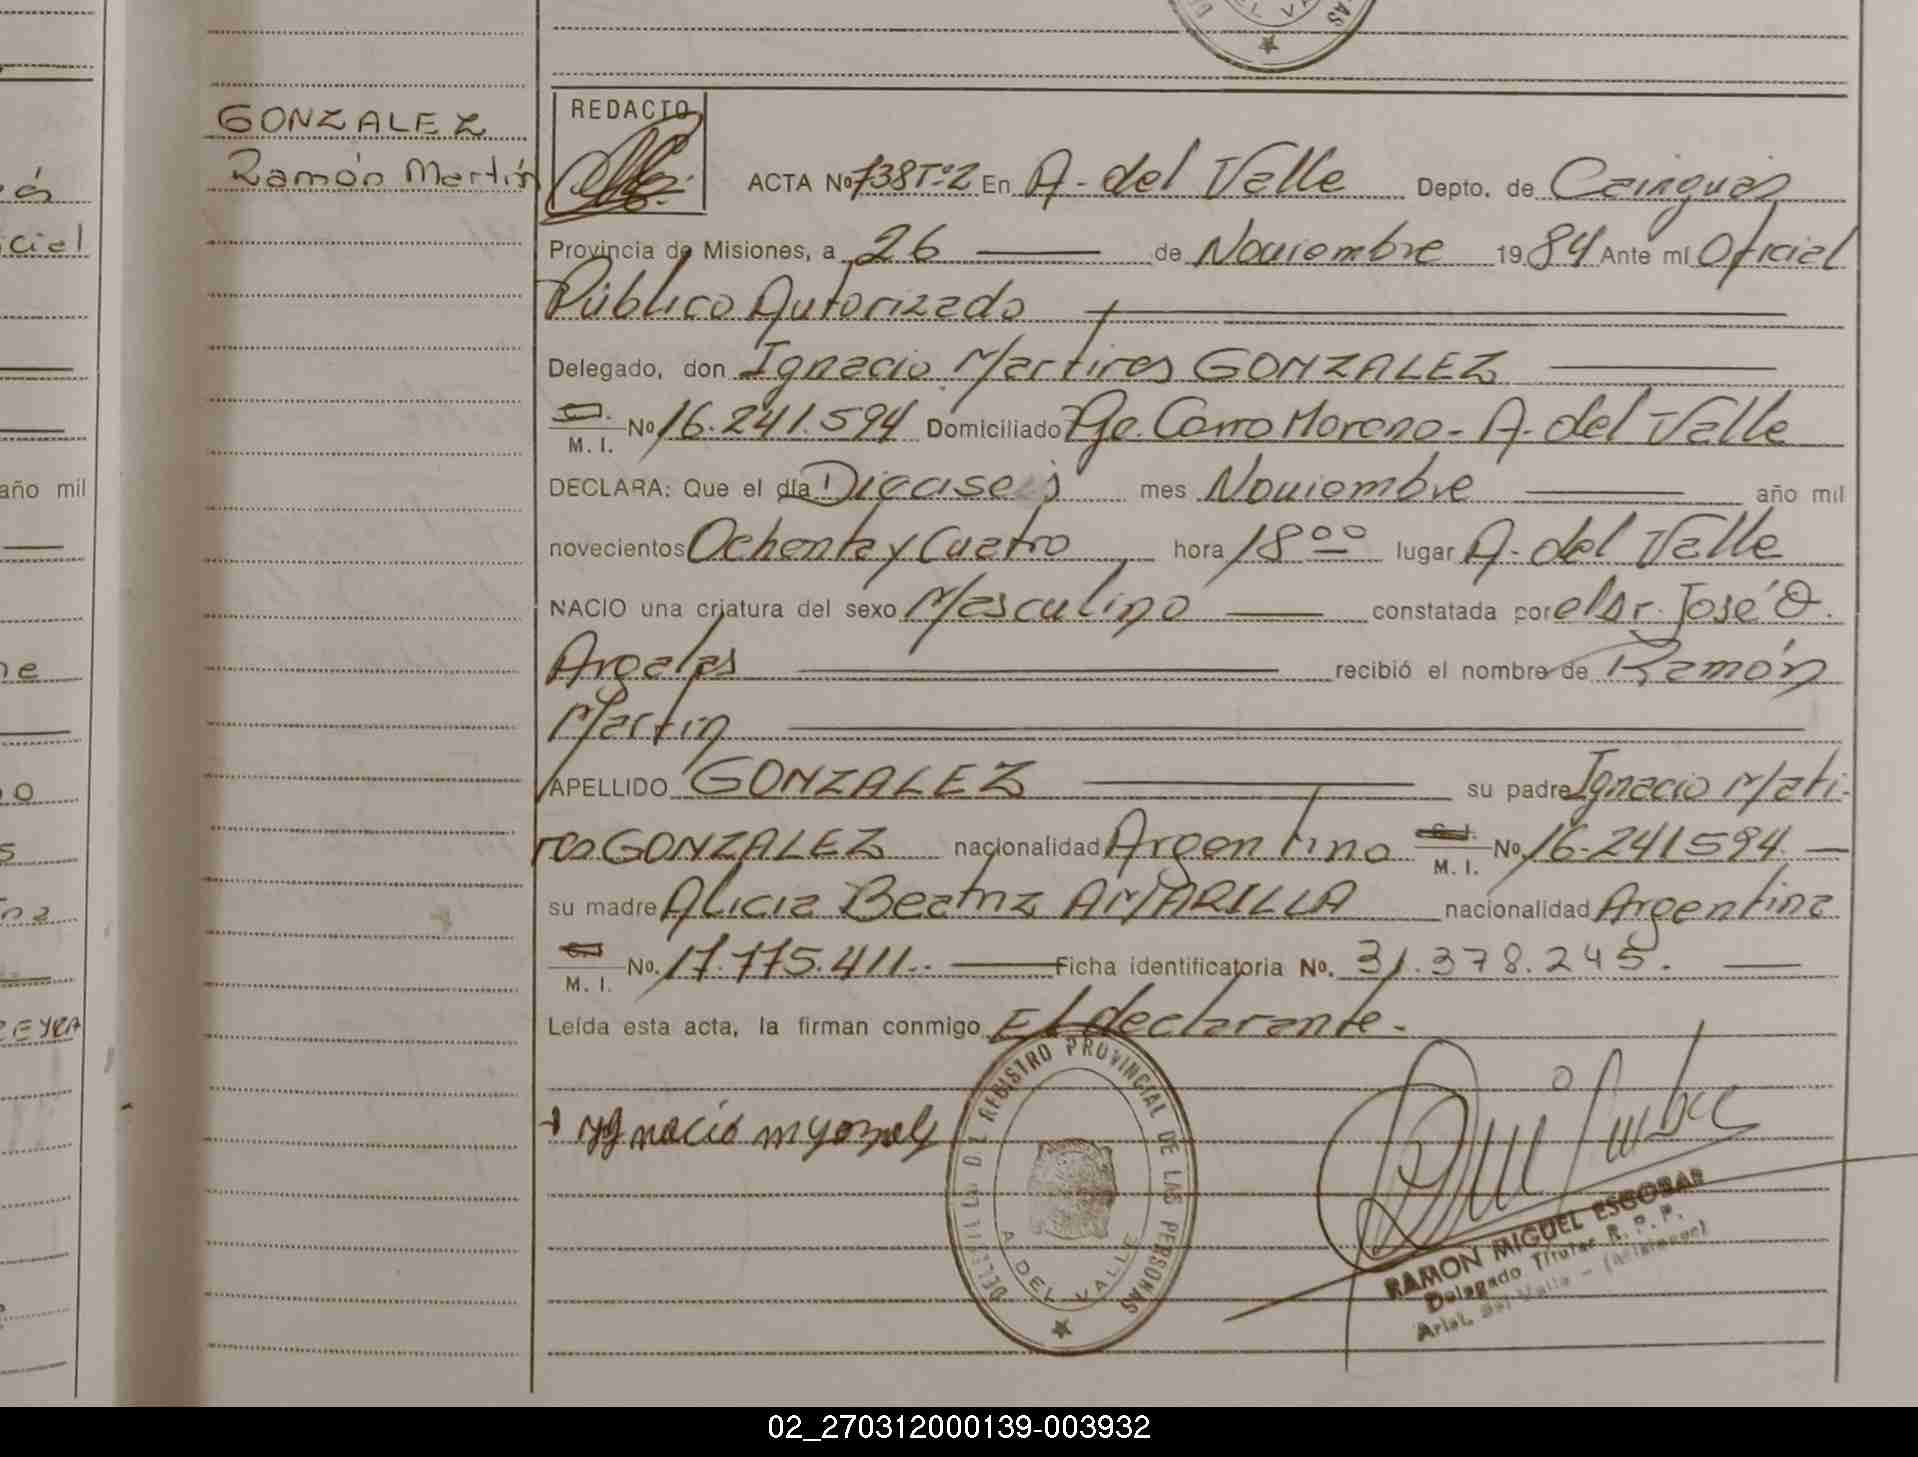 GONZALEZ
Ramón Martín
REDACTO
ACTA Nº 738 Tº2 En A. del Valle Depto. de Cainguás
Provincia de Misiones, a 26 de Noviembre 1984 Ante mí Oficial
Público Autorizado
Delegado, don Ignacio Martires GONZALEZ
M. I. Nº 16.241.594 Domiciliado Pje. Cerro Moreno - A. del Valle
DECLARA: Que el día Dieciseis mes Noviembre año mil
novecientos Ochenta y Cuatro hora 18ºº lugar A. del Valle
NACIO una criatura del sexo Masculino constatada por el Dr. José O.
Argales recibió el nombre de Ramón
Martín
APELLIDO GONZALEZ su padre Ignacio Mati-
res GONZALEZ nacionalidad Argentino M. I. Nº 16.241594
su madre Alicia Beatriz AMARILLA nacionalidad Argentina
M. I. No. 17.775.411. Ficha identificatoria No. 31.378.245.
Leída esta acta, la firman conmigo El declarante.
REGISTRO PROVINCIAL DE LAS PERSONAS
A. DEL VALLE
RAMON MIGUEL ESCOBAR
Delegado Titular R. P. P.
Arist. del Valle - (Misiones)
año mil
cial
02_270312000139-003932